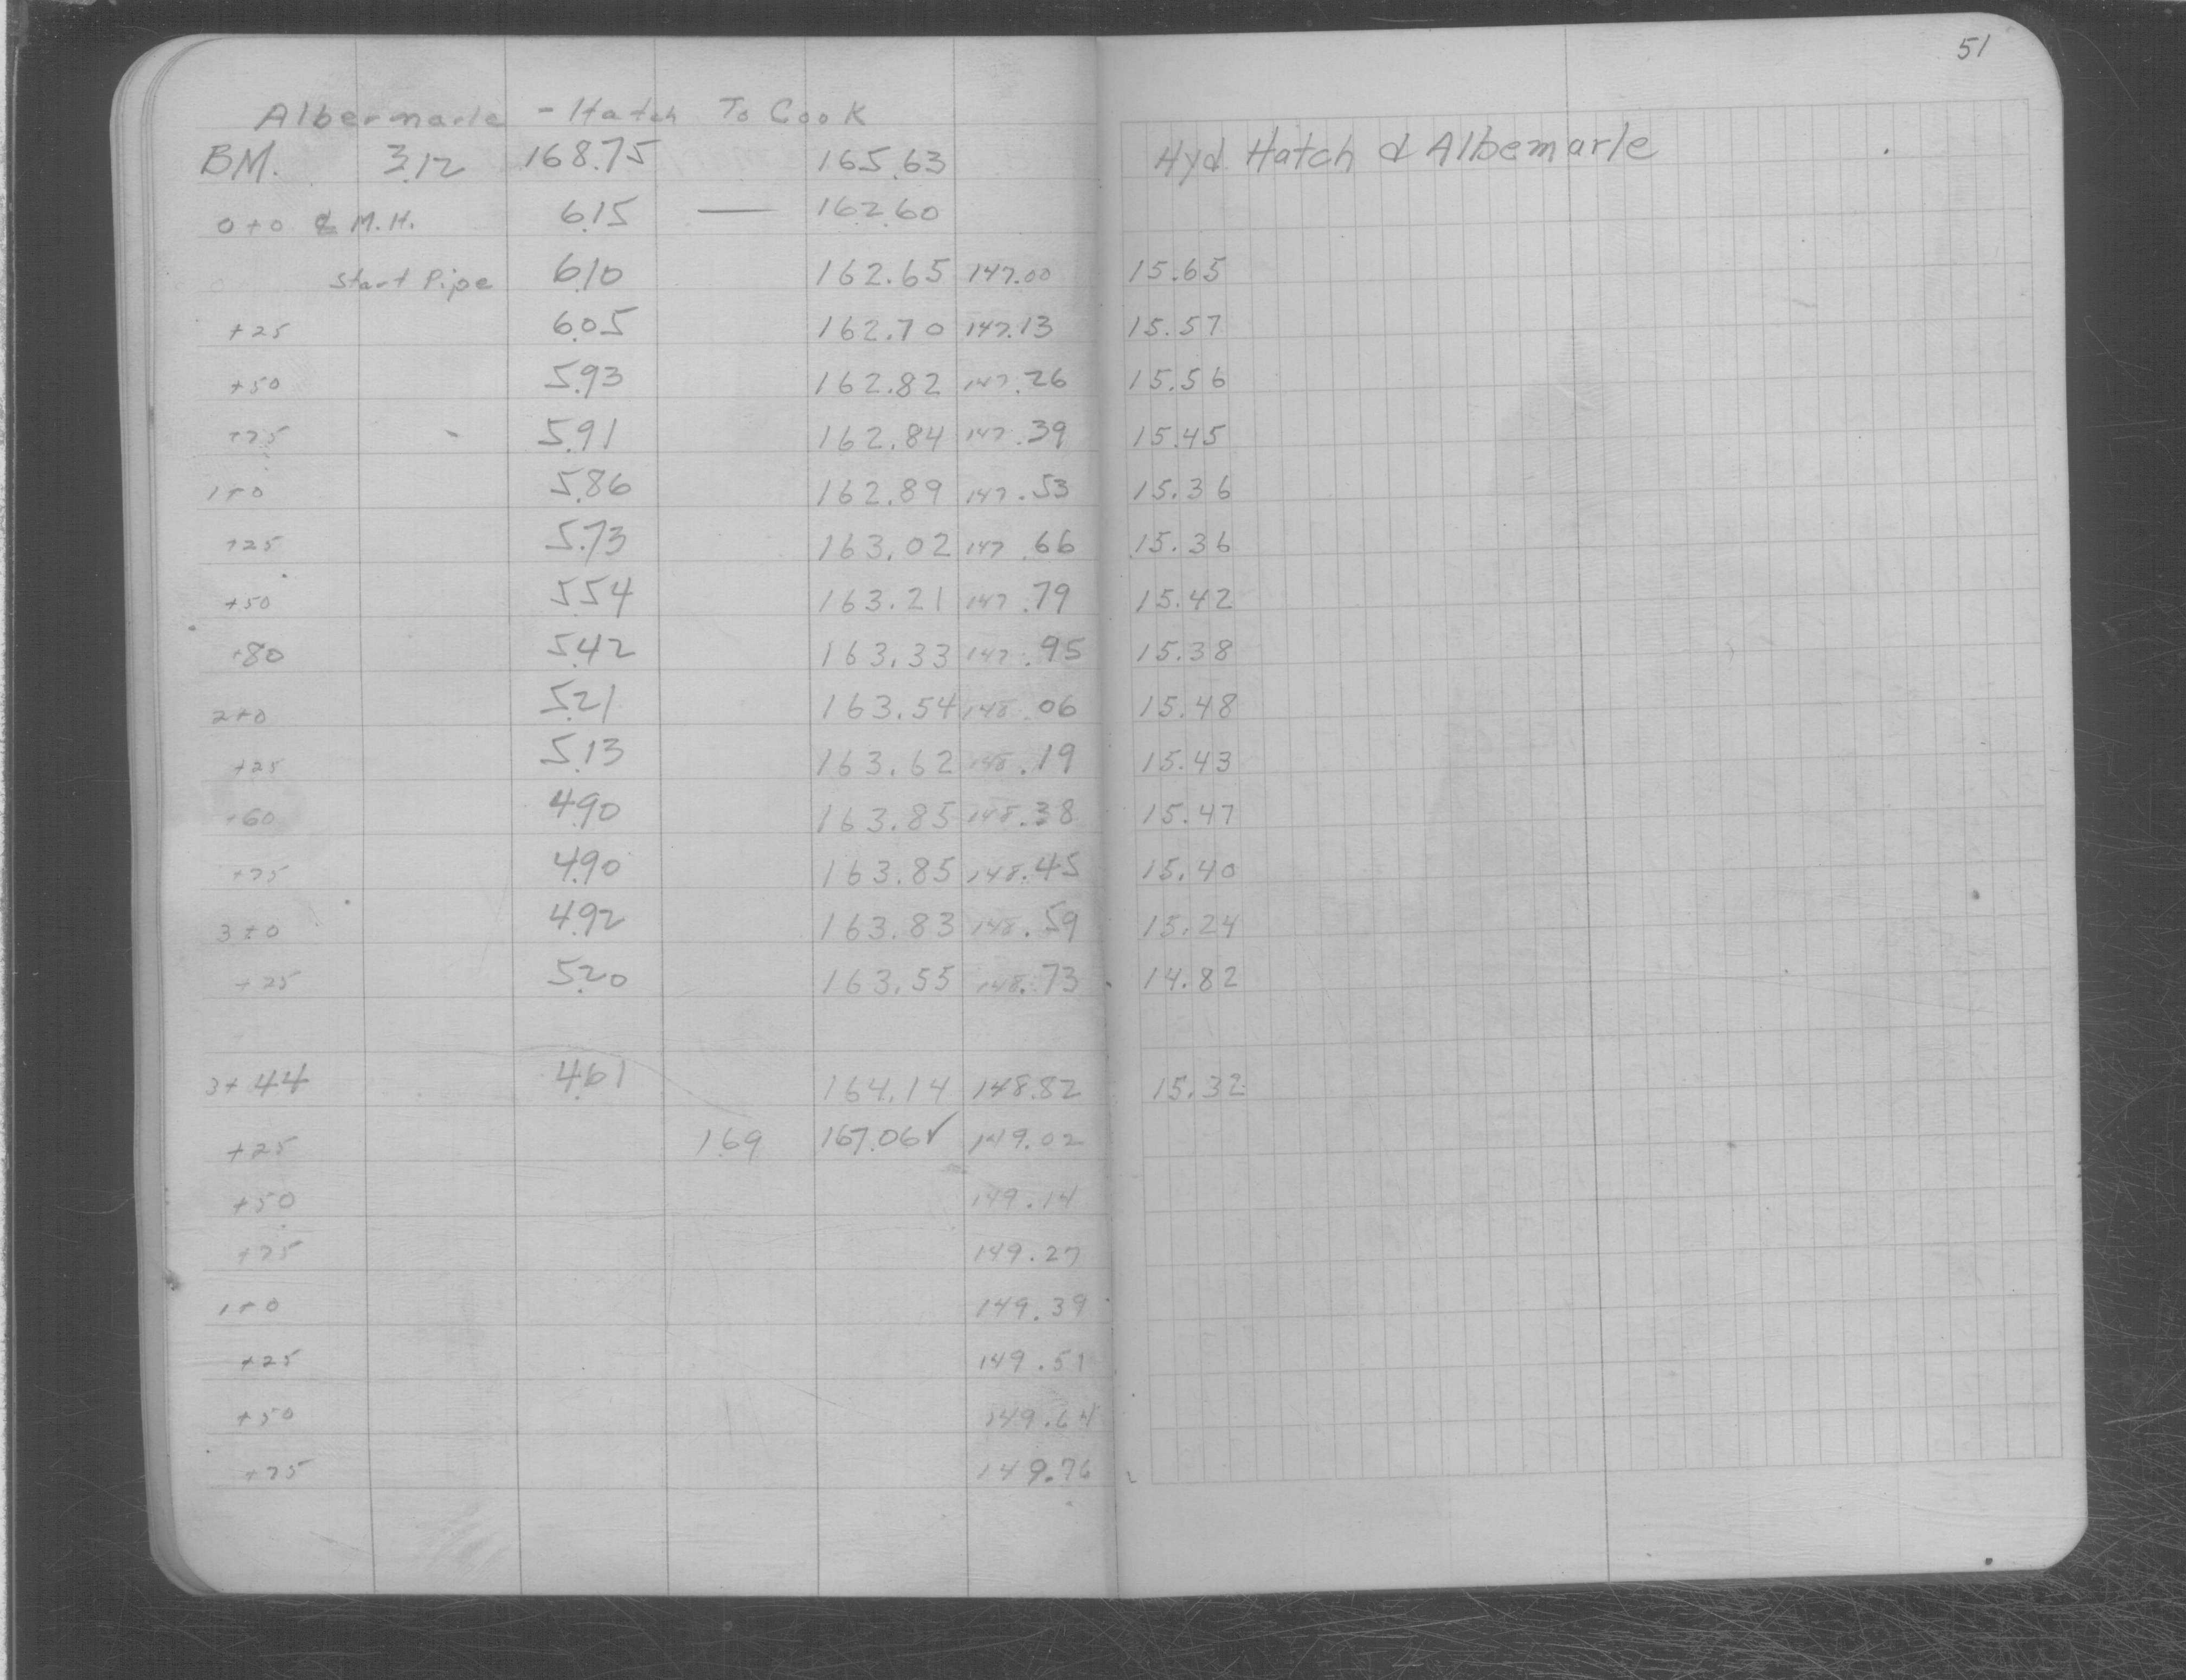 51
Albermarle - Hatch To Cook
BM. 3.12 168.75 165.63 Hyd. Hatch & Albemarle
0+0 ¢ M.H. 6.15 — 162.60
Start Pipe 6.10 162.65 147.00 15.65
+25 6.05 162.70 147.13 15.57
+50 5.93 162.82 147.26 15.56
+75 5.91 162.84 147.39 15.45
1+0 5.86 162.89 147.53 15.36
+25 5.73 163.02 147.66 15.36
+50 5.54 163.21 147.79 15.42
+80 5.42 163.33 147.95 15.38
2+0 5.21 163.54 148.06 15.48
+25 5.13 163.62 148.19 15.43
+60 4.90 163.85 148.38 15.47
+75 4.90 163.85 148.45 15.40
3+0 4.92 163.83 148.59 15.24
+25 5.20 163.55 148.73 14.82
3+44 4.61 164.14 148.82 15.32
+25 1.69 167.06✓ 149.02
+50 149.14
+75 149.27
1+0 149.39
+25 149.51
+50 149.64
+75 149.76